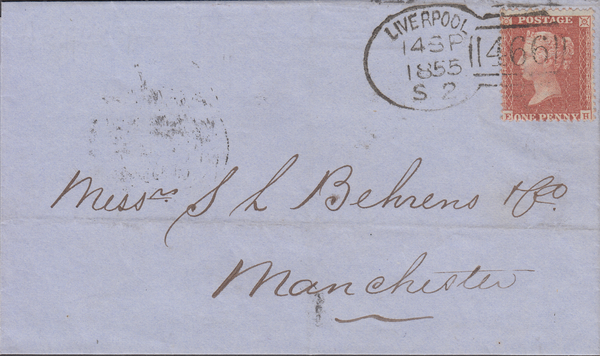 LIVERPOOL
14SP
1855
S 2
466
POSTAGE
ONE PENNY
Messrs S L Behrens & Co.
Manchester